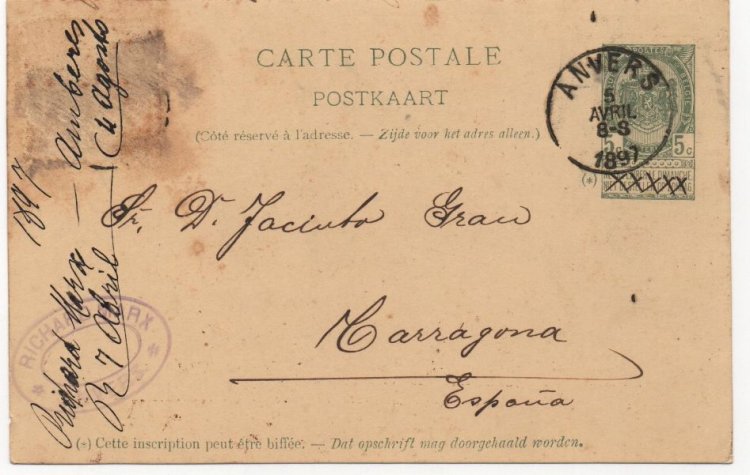 CARTE POSTALE
POSTKAART
(Côté réservé à l'adresse. — Zijde voor het adres alleen.)
POSTES
5 5 c
ANVERS
5
AVRIL
8-S
1897
(*) XXXXX
Sr. Dn. Jacinto Grau
Tarragona
España
(*) Cette inscription peut être biffée. — Dat opschrift mag doorgehaald worden.
1897 — Amberes
Richard Marx
R 7 Abril
C 4 Agosto
RICHARD MARX